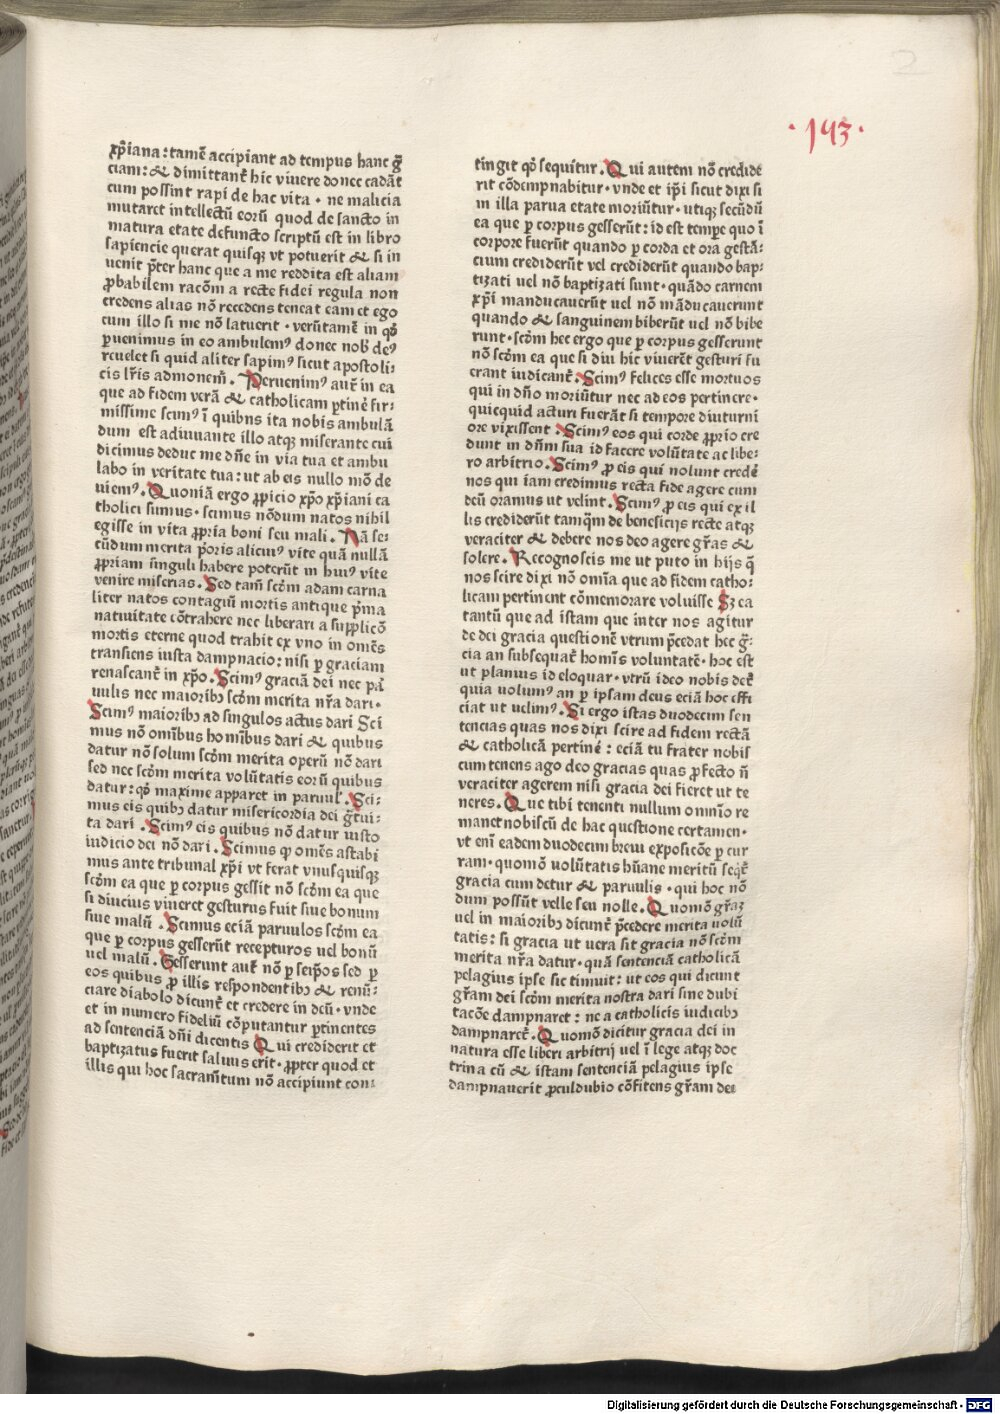 ·193·
xp̄iana: tamē accipiant ad tempus hanc grā
ciam: & dimittant̄ hic viuere donec cadāt
cum possint rapi de hac vita · ne malicia
mutaret intellectū eorū quod de sancto in
matura etate defuncto scriptū est in libro
sapiencie querat quisqꝫ vt potuerit & si in
uenit p̄ter hanc que a me reddita est aliam
ꝓbabilem racōm a recte fidei regula non
credens alias nō recedens teneat eam et ego
cum illo si me nō latuerit · verūtamē in qō
ꝑuenimus in eo ambulemꝰ donec nob̄ deꝰ
reuelet si quid aliter sapimꝰ sicut apostoli⸗
cis lr̄is admonemꝰ. Peruenimꝰ aut̄ in ea
que ad fidem verā & catholicam ꝑtinēt fir⸗
missime scimꝰ ī quibus ita nobis ambulā
dum est adiuuante illo atqꝫ miserante cui
dicimus deduc me dn̄e in via tua et ambu
labo in veritate tua: ut ab eis nullo mō de
uiemꝰ. Quoniā ergo ꝓpicio xp̄o xp̄iani ca
tholici sumus · scimus nōdum natos nihil
egisse in vita ꝓpria boni seu mali. Nā se⸗
cūdum merita p̄oris alicuiꝰ vite quā nullā
ꝓpriam singuli habere poterūt in huiꝰ vite
venire miserias. Sed tam̄ scd̄m adam carna
liter natos contagiū mortis antique p̄ma
natiuitate cōtrahere nec liberari a supplicō
mortis eterne quod trahit ex vno in omēs
transiens iusta dampnacio: nisi ꝑ graciam
renascant̄ in xp̄o. Scimꝰ graciā dei nec paꝛ
uulis nec maioribꝫ scd̄m merita nr̄a dari·
Scimꝰ maioribꝫ ad singulos actus dari Sci
mus nō omnibus hominibus dari & quibus
datur nō solum scd̄m merita operū nō dari
sed nec scd̄m merita volūtatis eorū quibus
datur: qō maxime apparet in paruul̄. Sci⸗
mus eis quibꝫ datur misericordia dei grātui⸗
ta dari. Scimꝰ eis quibus nō datur iusto
iudicio dei nō dari. Scimus ꝙ omēs astabi
mus ante tribunal xp̄i vt ferat vnusquisqꝫ
scd̄m ea que ꝑ corpus gessit nō scd̄m ea que
si diucius viueret gesturus fuit siue bonum
siue malū. Scimus eciā paruulos scd̄m ea
que ꝑ corpus gesserūt recepturos uel bonū
uel malū. Gesserunt aut̄ nō ꝑ seip̄os sed ꝑ
eos quibus ꝓ illis respondentibꝫ & renū⸗
ciare diabolo dicunt̄ et credere in deū · vnde
et in numero fideliū cōputantur ꝑtinentes
ad sentenciā dn̄i dicentis Qui crediderit et
baptizatus fuerit saluus erit · ꝓpter quod et
illis qui hoc sacram̄tum nō accipiunt con⸗
tingit qō sequitur. Qui autem nō credide
rit cōdempnabitur · vnde et ip̄i sicut dixi si
in illa parua etate moriūtur · utiqꝫ secūdū
ea que ꝑ corpus gesserūt: id est tempe quo ī
corpore fuerūt quando ꝑ corda et ora gestā⸗
cium crediderūt vel crediderūt quando bap⸗
tizati uel nō baptizati sunt · quādo carnem
xp̄i manducauerūt uel nō māducauerunt
quando & sanguinem biberūt uel nō bibe
runt · scd̄m hec ergo que ꝑ corpus gesserunt
nō scd̄m ea que si diu hic viuerēt gesturi fu
erant iudicant̄. Scimꝰ felices esse mortuos
qui in dn̄o moriūtur nec ad eos pertinere·
quicquid acturi fuerāt si tempore diuturni
ore vixissent. Scimꝰ eos qui corde ꝓprio cre
dunt in dn̄m sua id facere volūtate ac libe⸗
ro arbitrio. Scimꝰ ꝓ eis qui nolunt crederē
nos qui iam credimus recta fide agere cum
deū oramus ut velint. Scimꝰ ꝓ eis qui ex il
lis crediderūt tamqm̄ de beneficijs recte atqꝫ
veraciter & debere nos deo agere gr̄as &
solere. Recognoscis me ut puto in hijs q̄
nos scire dixi nō omīa que ad fidem catho⸗
licam pertinent cōmemorare voluisse Sꝫ ea
tantū que ad istam que inter nos agitur
de dei gracia questionē vtrum p̄cedat hec grā⸗
cia an subsequat̄ homīs voluntatē · hoc est
ut planius id eloquar · vtrū ideo nobis det̄
quia uolumꝰ an ꝑ ipsam deus eciā hoc effi
ciat ut uelimꝰ. Si ergo istas duodecim sen
tencias quas nos dixi scire ad fidem rectā
& catholicā pertinē: eciā tu frater nobis
cum tenens ago deo gracias quas ꝓfecto n̄
veraciter agerem nisi gracia dei fieret ut te
neres. Que tibi tenenti nullum omnīo re
manet nobiscū de hac questione certamen·
vt enī eadem duodecim breui exposicōe ꝑcur
ram · quomō volūtatis hūane meritū seqt̄
gracia cum detur & paruulis · qui hoc nō
dum possūt velle seu nolle. Quomō gr̄aꝫ
uel in maioribꝫ dicunt̄ p̄cedere merita uolū
tatis: si gracia ut uera sit gracia nō scd̄m
merita nr̄a datur · quā sentenciā catholicā
pelagius ipse sic timuit: ut eos qui dicunt
gr̄am dei scd̄m merita nostra dari sine dubi
tacōe dampnaret: ne a catholicis iudicibꝫ
dampnaret̄. Quomō dicitur gracia dei in
natura esse liberi arbitrij uel ī lege atqꝫ doc
trina cū & istam sentenciā pelagius ipse
dampnauerit ꝓculdubio cōfitens gr̄am dei
Digitalisierung gefördert durch die Deutsche Forschungsgemeinschaft · DFG